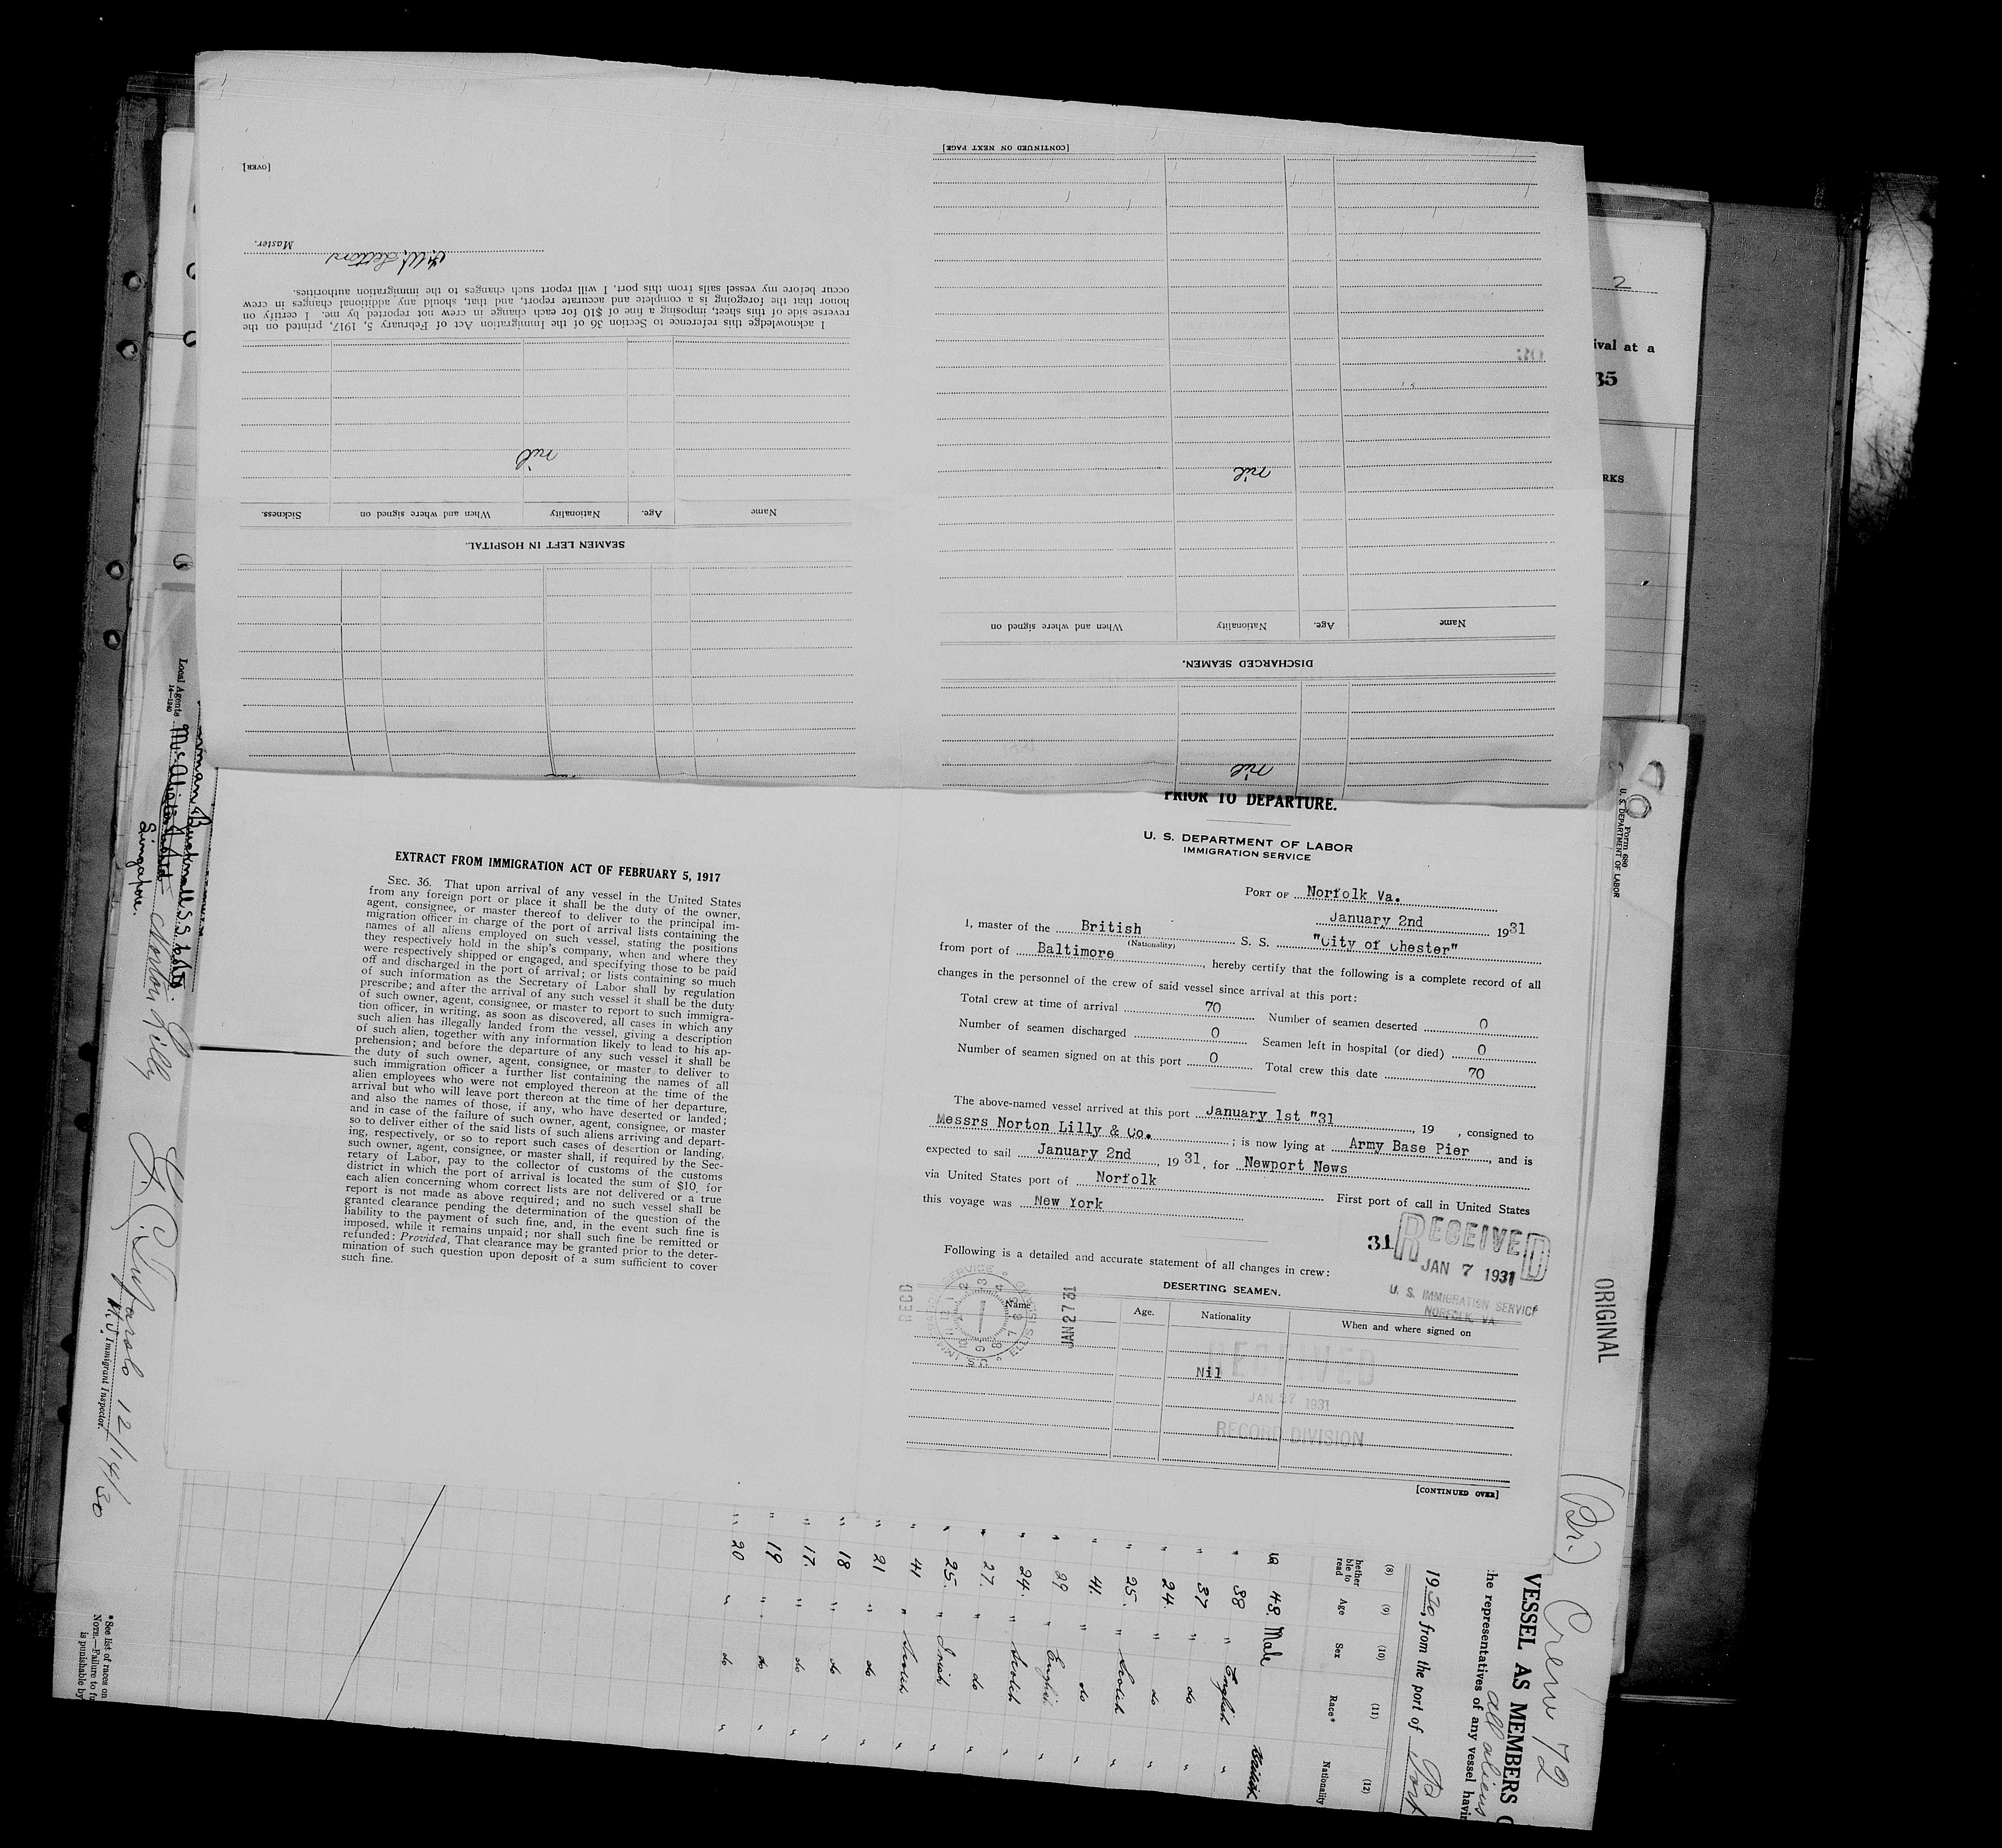 [OVER]
Master.
I acknowledge this reference to Section 36 of the Immigration Act of February 5, 1917, printed on the
reverse side of this sheet, imposing a fine of $10 for each change in crew not reported by me. I certify on
honor that the foregoing is a complete and accurate report, and that, should any additional changes in crew
occur before my vessel sails from this port, I will report such changes to the immigration authorities.
nil
Name Age. Nationality When and where signed on Sickness.
SEAMEN LEFT IN HOSPITAL.
[CONTINUED ON NEXT PAGE]
nil
Name Age. Nationality When and where signed on
DISCHARGED SEAMEN.
nil
EXTRACT FROM IMMIGRATION ACT OF FEBRUARY 5, 1917
SEC. 36. That upon arrival of any vessel in the United States
from any foreign port or place it shall be the duty of the owner,
agent, consignee, or master thereof to deliver to the principal im-
migration officer in charge of the port of arrival lists containing the
names of all aliens employed on such vessel, stating the positions
they respectively hold in the ship's company, when and where they
were respectively shipped or engaged, and specifying those to be paid
off and discharged in the port of arrival; or lists containing so much
of such information as the Secretary of Labor shall by regulation
prescribe; and after the arrival of any such vessel it shall be the duty
of such owner, agent, consignee, or master to report to such immigra-
tion officer, in writing, as soon as discovered, all cases in which any
such alien has illegally landed from the vessel, giving a description
of such alien, together with any information likely to lead to his ap-
prehension; and before the departure of any such vessel it shall be
the duty of such owner, agent, consignee, or master to deliver to
such immigration officer a further list containing the names of all
alien employees who were not employed thereon at the time of the
arrival but who will leave port thereon at the time of her departure,
and also the names of those, if any, who have deserted or landed;
and in case of the failure of such owner, agent, consignee, or master
so to deliver either of the said lists of such aliens arriving and depart-
ing, respectively, or so to report such cases of desertion or landing,
such owner, agent, consignee, or master shall, if required by the Sec-
retary of Labor, pay to the collector of customs of the customs
district in which the port of arrival is located the sum of $10 for
each alien concerning whom correct lists are not delivered or a true
report is not made as above required; and no such vessel shall be
granted clearance pending the determination of the question of the
liability to the payment of such fine, and, in the event such fine is
imposed, while it remains unpaid; nor shall such fine be remitted or
refunded: Provided, That clearance may be granted prior to the deter-
mination of such question upon deposit of a sum sufficient to cover
such fine.
PRIOR TO DEPARTURE.
U. S. DEPARTMENT OF LABOR
IMMIGRATION SERVICE
PORT OF Norfolk Va.
January 2nd 1931
I, master of the British S. S. "City of Chester"
(Nationality)
from port of Baltimore, hereby certify that the following is a complete record of all
changes in the personnel of the crew of said vessel since arrival at this port:
Total crew at time of arrival 70 Number of seamen deserted 0
Number of seamen discharged 0 Seamen left in hospital (or died) 0
Number of seamen signed on at this port 0 Total crew this date 70
The above-named vessel arrived at this port January 1st "31, 19 , consigned to
Messrs Norton Lilly & Co. ; is now lying at Army Base Pier, and is
expected to sail January 2nd, 1931, for Newport News
via United States port of Norfolk First port of call in United States
this voyage was New York
31
RECEIVED
JAN 7 1931
U. S. IMMIGRATION SERVICE
NORFOLK, VA
Following is a detailed and accurate statement of all changes in crew:
DESERTING SEAMEN.
Name Age. Nationality When and where signed on
RECD
JAN 27 31
Nil
RECEIVED
JAN 27 1931
RECORD DIVISION
[CONTINUED OVER]
2
ival at a
35
RKS
Form 680
U. S. DEPARTMENT OF LABOR
ORIGINAL
(Br.) Crew 72
VESSEL AS MEMBERS
he representatives of any vessel havin
all aliens
1930, from the port of
(8) (9) (10) (11) (12)
hether
ble to
read
Age Sex Race* Nationality
48. Male British
38 " English "
37 " do "
24. " do "
25. " Scotch "
41. " do "
29 " English "
24. " Scotch "
27. " do "
25. " Irish "
41 " Scotch "
21 " do "
18 " do "
17. " do "
19 " do "
20 " do "
Local Agents
14-1240
Singapore.
Norton Lilly
12/14/30
Immigrant Inspector.
*See list of races on
NOTE.—Failure to fu
is punishable by